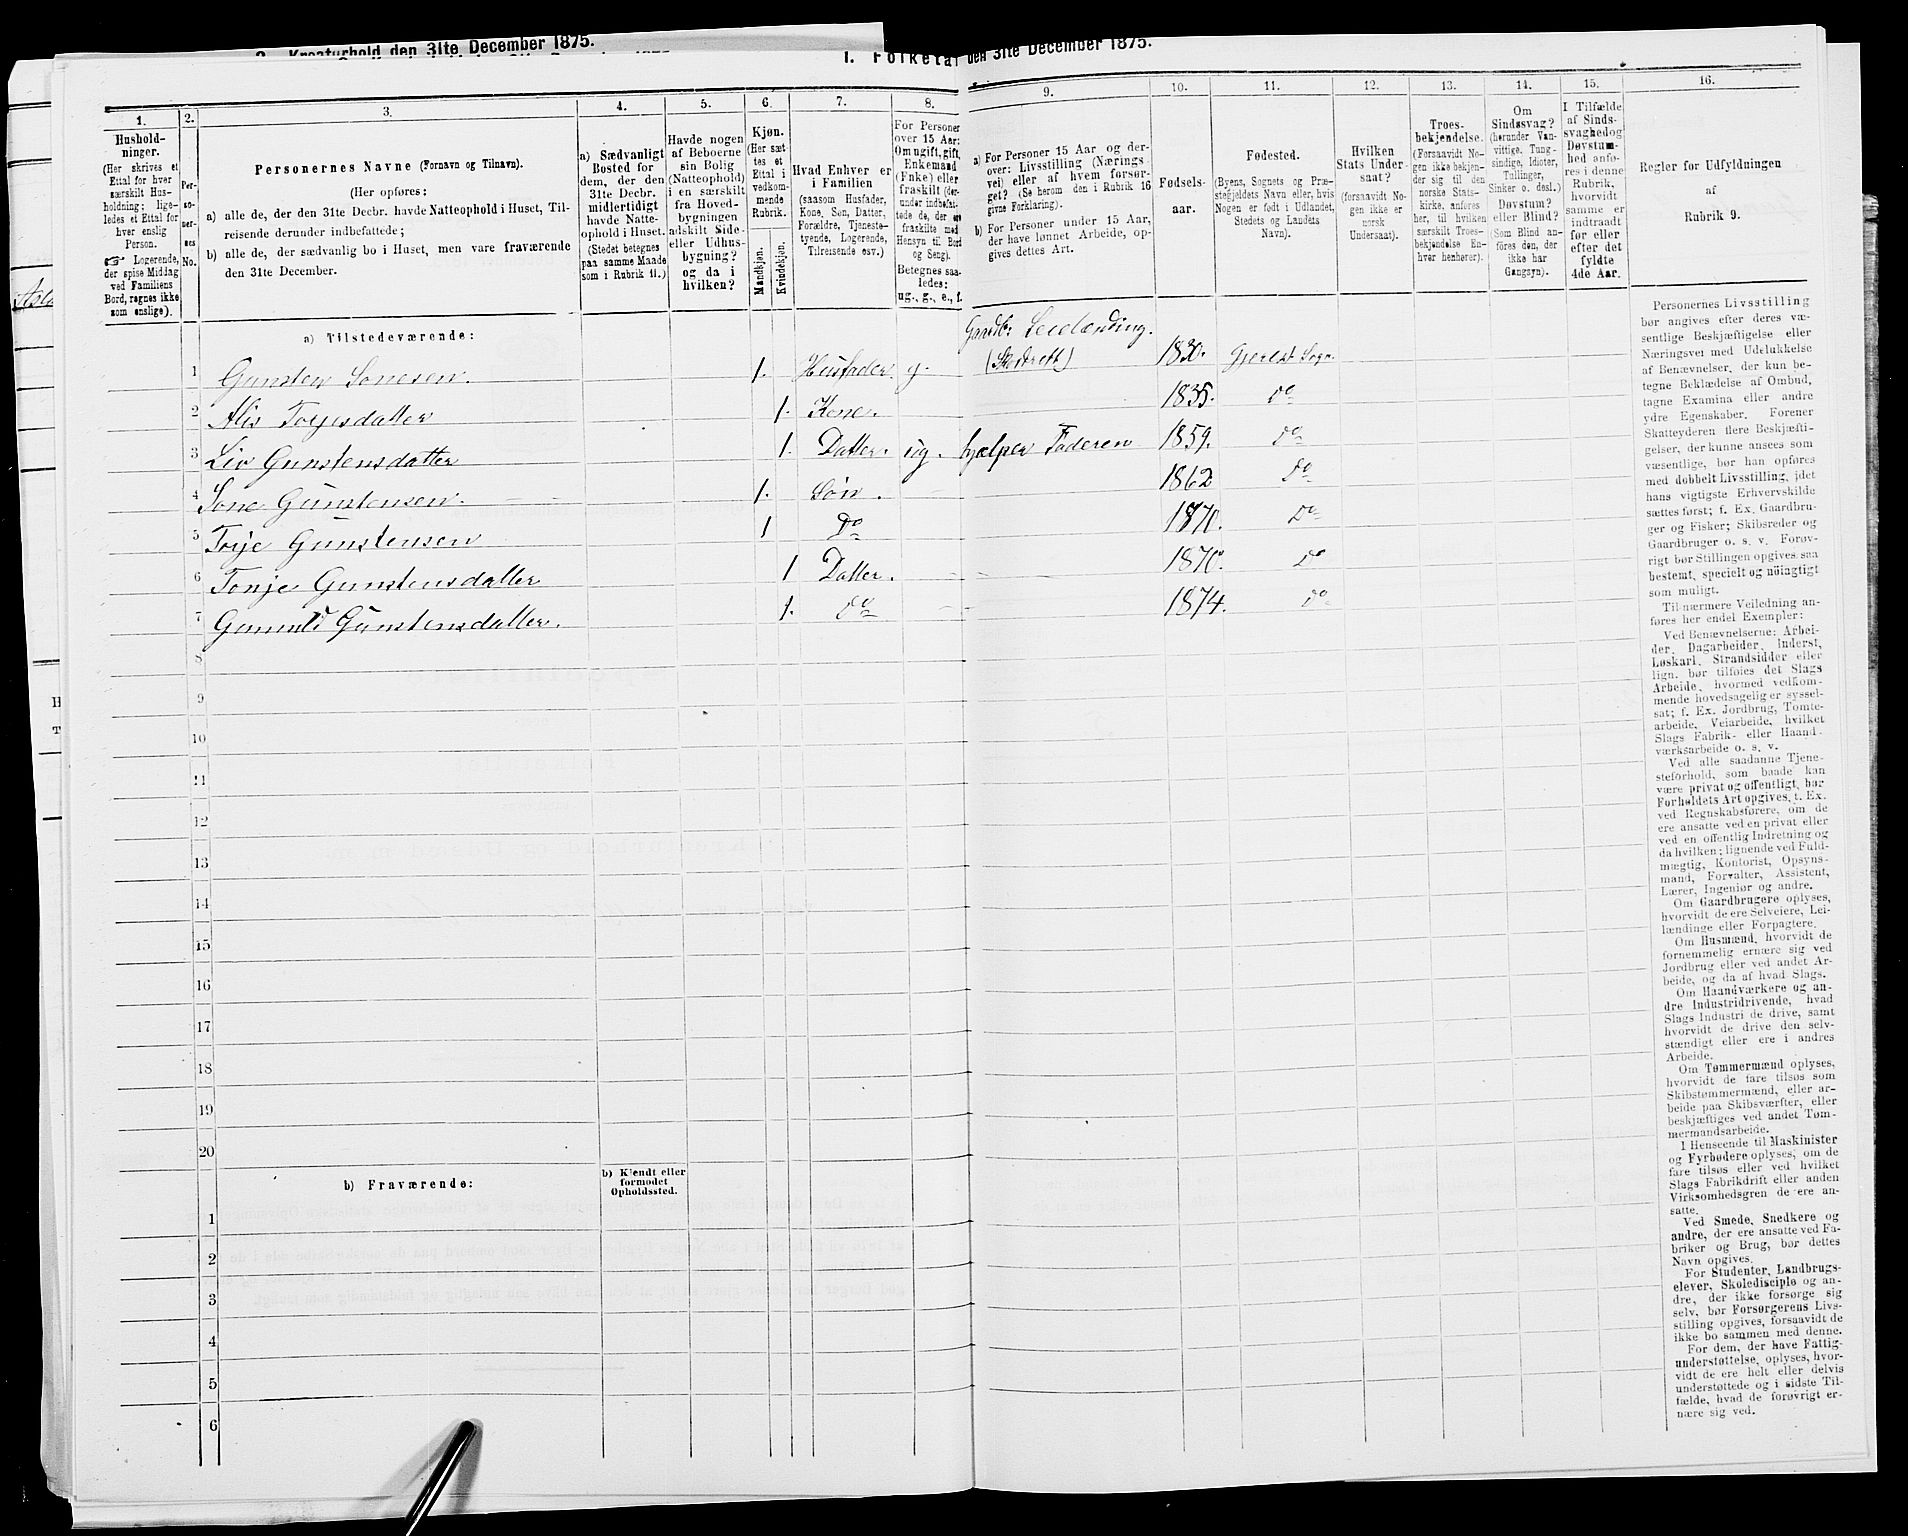 2. Kreaturhold den 31te December 1875.
I. Folketal den 31te December 1875.
1. 2. 3. 4. 5. 6. 7. 8. 9. 10. 11. 12. 13. 14. 15. 16.
Hushold-
ninger.
(Her skrives et
Ettal for hver
særskilt Hus-
holdning; lige-
ledes et Ettal for
hver enslig
Person.
☞ Logerende,
der spise Middag
ved Familiens
Bord, regnes ikke
som enslige).
Per-
so-
ner-
nes
No.
Personernes Navne (Fornavn og Tilnavn).
(Her opføres:
a) alle de, der den 31te Decbr. havde Natteophold i Huset, Til-
reisende derunder indbefattede;
b) alle de, der sædvanlig bo i Huset, men vare fraværende
den 31te December.
a) Sædvanligt
Bosted for
dem, der den
31te Decbr.
midlertidigt
havde Natte-
ophold i Huset.
(Stedet betegnes
paa samme Maade
som i Rubrik 11.)
Havde nogen
af Beboerne
sin Bolig
(Natteophold)
i en særskilt
fra Hoved-
bygningen
adskilt Side-
eller Udhus-
bygning?
og da i
hvilken?
Kjøn.
(Her sæt-
tes et
Ettal i
vedkom-
mende
Rubrik.
Mandkjøn.
Kvindekjøn.
Hvad Enhver er
i Familien
(saasom Husfader,
Kone, Søn, Datter,
Forældre, Tjeneste-
tyende, Logerende,
Tilreisende osv.)
For Personer
over 15 Aar:
Om ugift, gift,
Enkemand
(Enke) eller
fraskilt (der-
under indbefat-
tede de, der ere
fraskilte med
Hensyn til Bord
og Seng).
Betegnes saa-
ledes:
ug., g., e., f.
a) For Personer 15 Aar og der-
over: Livsstilling (Nærings-
vei) eller af hvem forsør-
get? (Se herom den i Rubrik 16
givne Forklaring).
b) For Personer under 15 Aar,
der have lønnet Arbeide, op-
gives dettes Art.
Fødsels-
aar.
Fødested.
(Byens, Sognets og Præ-
stegjeldets Navn eller, hvis
Nogen er født i Udlandet,
Stedets og Landets
Navn).
Hvilken
Stats Under-
saat?
(forsaavidt No-
gen ikke er
norsk
Undersaat).
Troes-
bekjendelse.
(Forsaavidt No-
gen ikke bekjen-
der sig til den
norske Stats-
kirke, anføres
her, til hvilken
særskilt Troes-
bekjendelse En-
hver henhører).
Om
Sindssvag?
(herunder Van-
vittige, Tung-
sindige, Idioter,
Tullinger,
Sinker o. desl.)
Døvstum?
eller Blind?
(Som Blind an-
føres den, der
ikke har
Gangsyn).
I Tilfælde
af Sinds-
svaghed og
Døvstum-
hed anfø-
res i denne
Rubrik,
hvorvidt
samme er
indtraadt
før eller
efter det
fyldte
4de Aar.
Regler for Udfyldningen
af
Rubrik 9.
a) Tilstedeværende:
Gaardbr. Leilænding.
1 Gunsten Sonesen. 1. Husfader. g. 1830. Gjerest. Sogn.
2 Alis Torjesdatter 1. Kone. 1835. Do
3 Liv Gunstensdatter 1. Datter. ug. hjælper Faderen 1859. Do
4 Sone Gunstensen. 1. Søn. 1862 Do
5 Torje Gunstensen 1 Do 1870. Do
6 Tonje Gunstensdatter 1 Datter. 1870. Do
7 Gunstensdatter. 1. Do 1874. Do
8
9
10
11
12
13
14
15
16
17
18
19
20
b) Fraværende:
b) Kjendt eller
formodet
Opholdssted.
1
2
3
4
5
6
Personernes Livsstilling
bør angives efter deres væ-
sentlige Beskjæftigelse eller
Næringsvei med Udelukkelse
af Benævnelser, der kun be-
tegne Beklædelse af Ombud,
tagne Examina eller andre
ydre Egenskaber. Forener
Skatteyderen flere Beskjæfti-
gelser, der kunne ansees som
væsentlige, bør han opføres
med dobbelt Livsstilling, idet
hans vigtigste Erhvervskilde
sættes først; f. Ex. Gaardbru-
ger og Fisker; Skibsreder og
Gaardbruger o. s. v. Forøv-
rigt bør Stillingen opgives saa
bestemt, specielt og nøiagtigt
som muligt.
Til nærmere Veiledning an-
føres her endel Exempler:
Ved Benævnelserne: Arbei-
der, Dagarbeider, Inderst,
Løskarl, Strandsidder eller
lign. bør tilføies det Slags
Arbeide, hvormed vedkom-
mende hovedsagelig er syssel-
sat; f. Ex. Jordbrug, Tomte-
arbeide, Veiarbeide, hvilket
Slags Fabrik- eller Haand-
værksarbeide o. s. v.
Ved alle saadanne Tjene-
steforhold, som baade kan
være privat og offentligt, bør
Forholdets Art opgives, t. Ex.
ved Regnskabsførere, om de
ere ansatte ved en privat eller
ved en offentlig Indretning og
da hvilken; lignende ved Fuld-
mægtig, Kontorist, Opsyns-
mand, Forvalter, Assistent,
Lærer, Ingeniør og andre.
Om Gaardbrugere oplyses,
hvorvidt de ere Selveiere, Lei-
lændinge eller Forpagtere.
Om Husmænd, hvorvidt de
fornemmelig ernære sig ved
Jordbrug eller ved andet Ar-
beide, og da af hvad Slags.
Om Haandværkere og an-
dre Industridrivende, hvad
Slags Industri de drive, samt
hvorvidt de drive den selv-
stændigt eller ere i andres
Arbeide.
Om Tømmermænd oplyses,
hvorvidt de fare tilsøs som
Skibstømmermænd, eller ar-
beide paa Skibsværfter, eller
beskjæftiges ved andet Tøm-
mermandsarbeide.
I Henseende til Maskinister
og Fyrbødere oplyses, om de
fare tilsøs eller ved hvilket
Slags Fabrikdrift eller anden
Virksomhedsgren de ere an-
satte.
Ved Smede, Snedkere og
andre, der ere ansatte ved Fa-
briker og Brug, bør dettes
Navn opgives.
For Studenter, Landbrugs-
elever, Skoledisciple og an-
dre, der ikke forsørge sig
selv, bør Forsørgerens Livs-
stilling opgives, forsaavidt de
ikke bo sammen med denne.
For dem, der have Fattig-
understøttelse, oplyses, hvor-
vidt de ere helt eller delvis
understøttede og i sidste Til-
fælde, hvad de forøvrigt er-
nære sig ved.